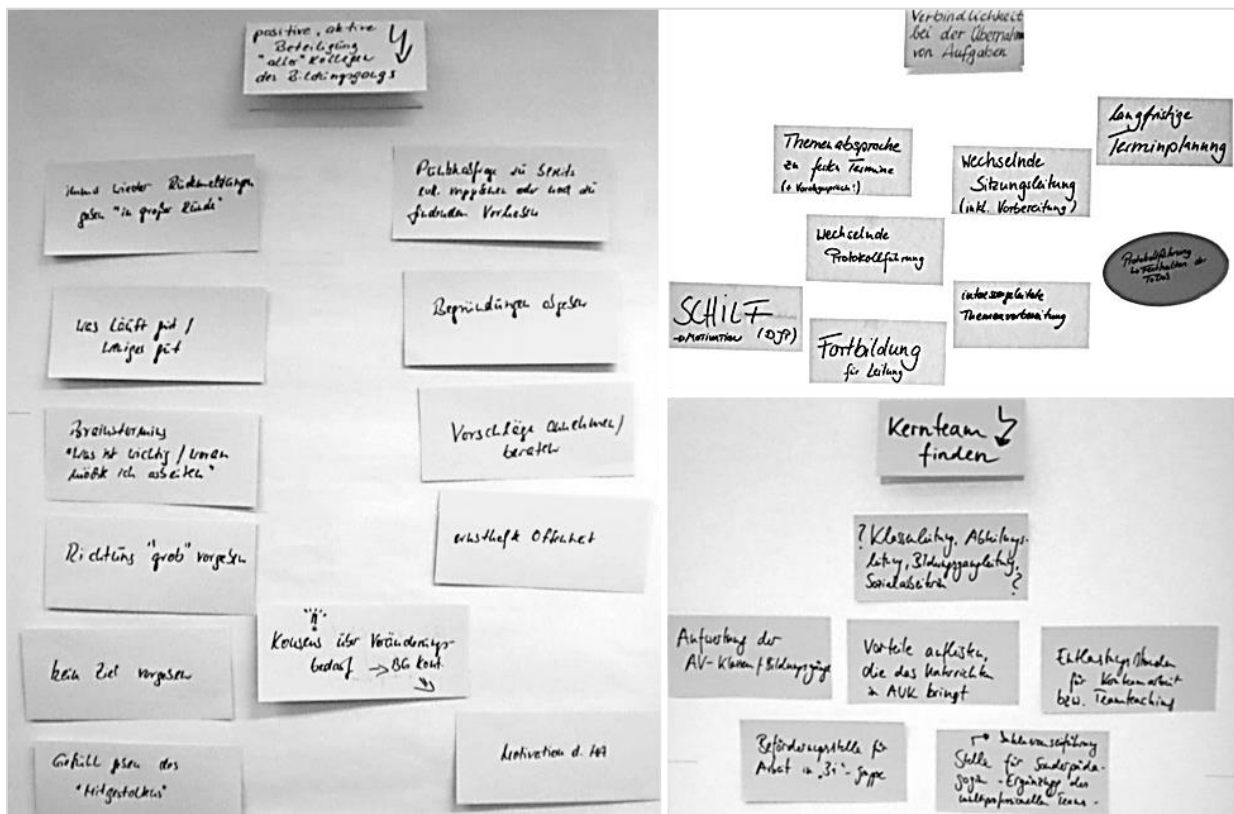 positive, aktive
Beteiligung
"aller" Kollegen
des Bildungsgangs
immer wieder Rückmeldungen
geben "in großer Runde"
Was läuft gut /
weniger gut
Brainstorming
"Was ist wichtig / woran
möchte ich arbeiten"
Richtung "grob" vorgeben
kein Ziel vorgeben
Gefühl geben des
"Mitgestaltens"
zu
oder
Vorhaben
Begründungen abgeben
Vorschläge annehmen /
beraten
ernsthafte Offenheit
Konsens über Veränderungs-
bedarf → BG Konf.
Motivation d.
Verbindlichkeit
bei der Übernahme
von Aufgaben
Themenabsprache
zu festen Termine
(+ Vorabgespräch!)
Wechselnde
Sitzungsleitung
(inkl. Vorbereitung)
langfristige
Terminplanung
Wechselnde
Protokollführung
Protokollführung
↳ Festhalten der
ToDos
SCHILF
→ MOTIVATION (DJP)
Fortbildung
für Leitung
interessengeleitete
Themenvorbereitung
Kernteam
finden
? Klassenleitung, Abteilungs-
leitung, Bildungsgangleitung,
Sozialarbeiterin ?
Aufwertung der
AV-Klassen / Bildungsgänge
Vorteile auflisten,
die das Unterrichten
in AVK bringt
Entlastungsstunden
für
bzw. Teamteaching
Beförderungsstelle für
Arbeit in "Bi"-gruppe
Stelle für Sonderpäda-
gogen - Ergänzung des
multiprofessionellen Teams -